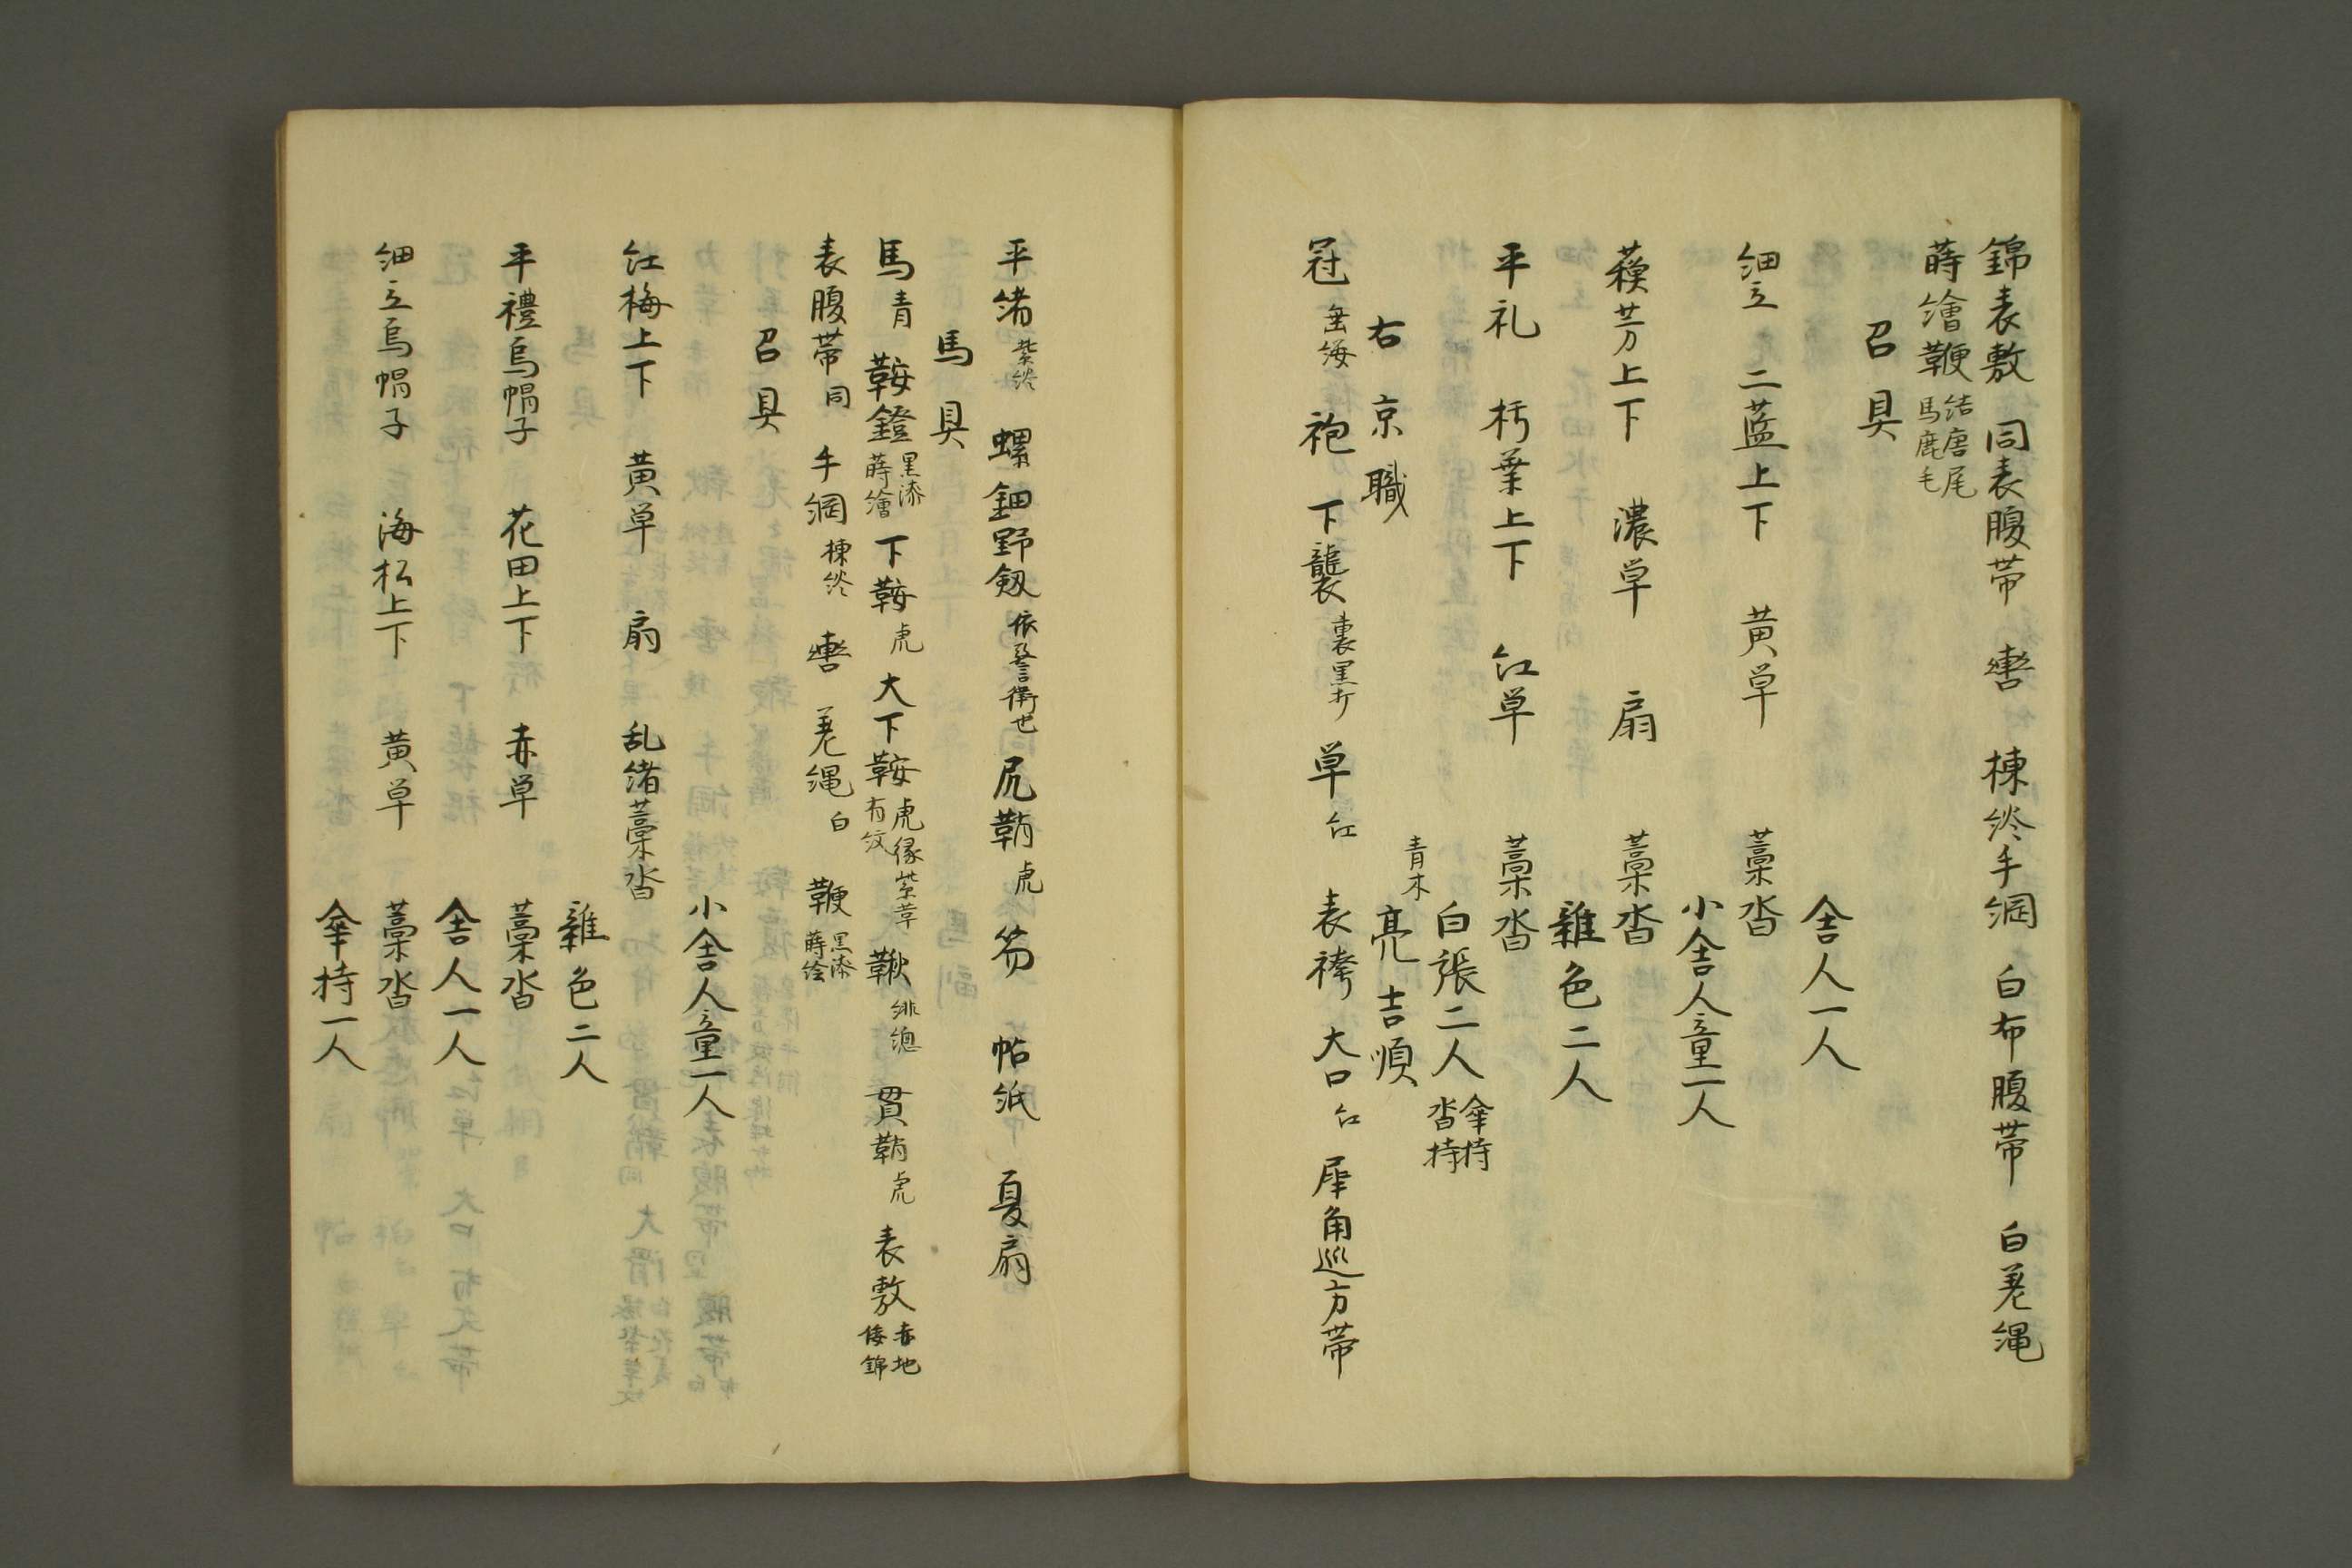 錦表敷 同表腹帯 轡 楝終手綱 白布腹帯 白差縄
蒔繪鞭 結唐尾 馬鹿毛
召具
舎人一人
細立 二藍上下 黄単 藁沓
小舎人童一人
蘓芳上下 濃単 扇 藁沓
雜色二人
平礼 朽葉上下 紅単 藁沓
白張二人 傘持 沓持
右京職
青木
亮吉順
冠 垂纓 袍 下襲 裏黒打 単 紅 表袴 大口 紅 犀角巡方帯
平緒 紫終 螺鈿野劔 依警衛也 尻鞘 虎 笏 帖紙 夏扇
馬具
馬 青 鞍鐙 黒漆 蒔繪 下鞍 虎 大下鞍 虎縁紫革 有文 鞦 緋總 貫鞘 虎 表敷 赤地 倭錦
表腹帯 同 手綱 楝終 轡 差縄 白 鞭 黒漆 蒔绘
召具
小舎人童一人
紅梅上下 黄単 扇 乱緒藁沓
雜色二人
平禮烏帽子 花田上下 赤単 藁沓
舎人一人
細立烏帽子 海松上下 黄単 藁沓
傘持一人